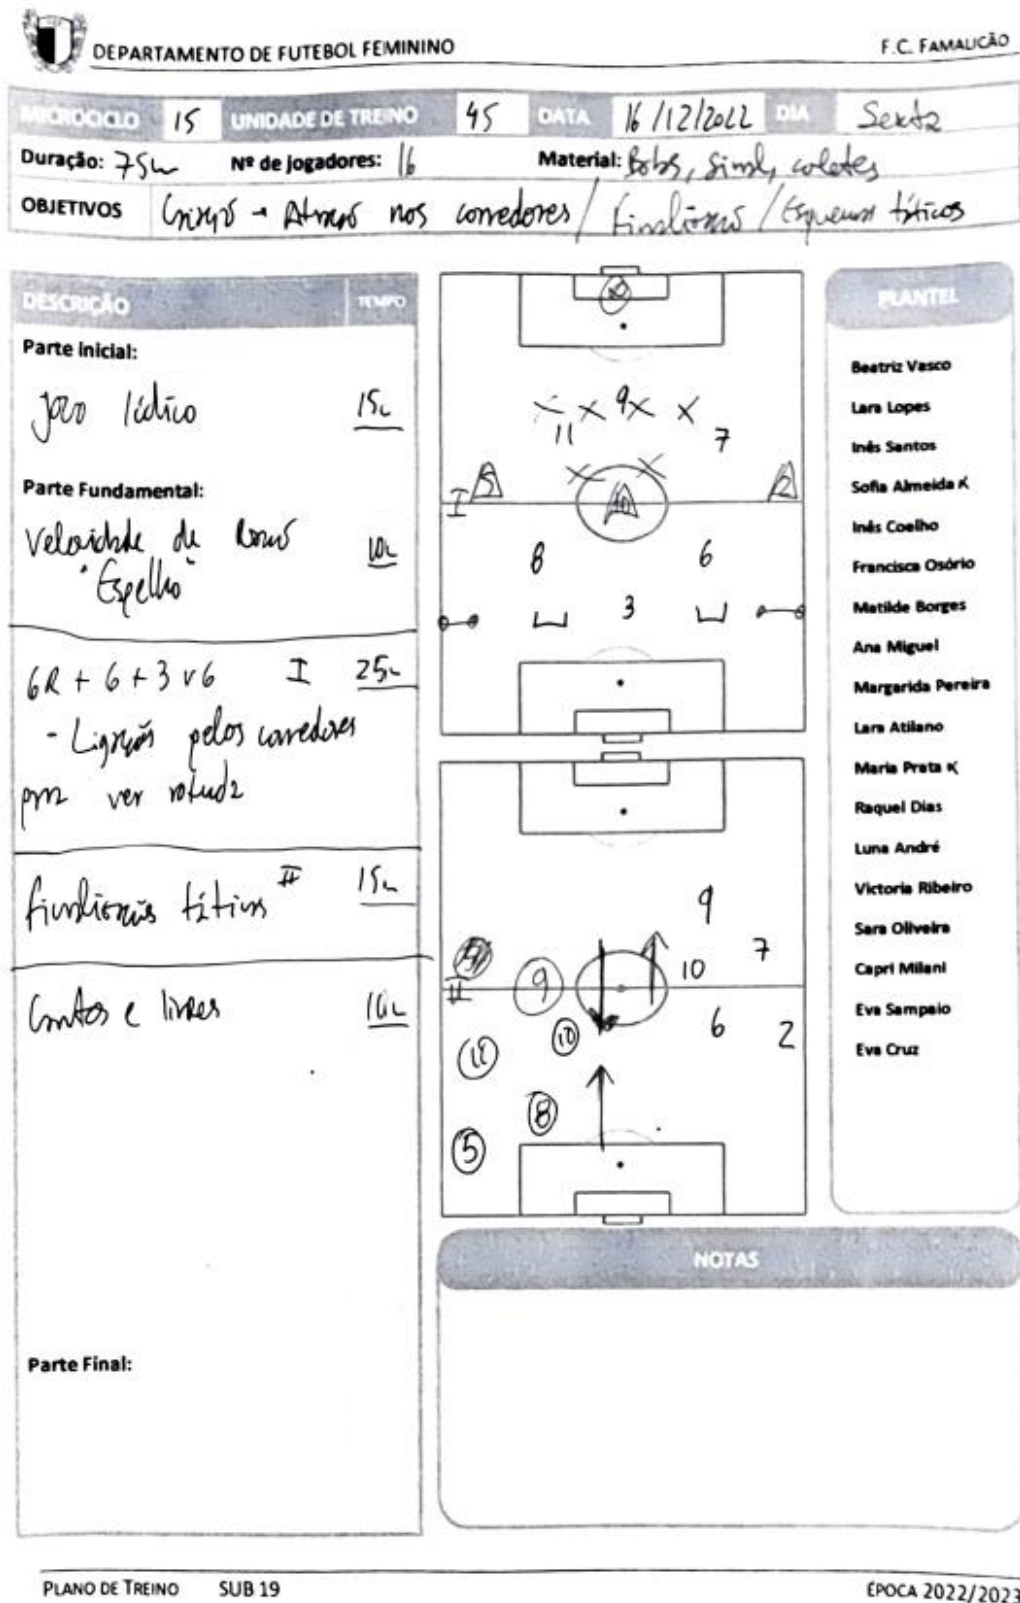 DEPARTAMENTO DE FUTEBOL FEMININO
F.C. FAMALICÃO
MICROCICLO 15 UNIDADE DE TREINO 45 DATA 16/12/2022 DIA Sexta
Duração: 75m Nº de jogadores: 16 Material: Bolas, Sinal, coletes
OBJETIVOS Criação → Atração nos corredores / Finalização / Esquemas táticos
DESCRIÇÃO TEMPO
Parte Inicial:
Jogo lúdico 15m
Parte Fundamental:
Velocidade de
"Espelho" 10m
6R + 6 + 3 v 6 I 25m
- Ligação pelos corredores
para ver
Finalizações táticas II 15m
Cantos e livres 10m
Parte Final:
X
X X 9 X X
11 7
X X
5 10 2
I
8 6
3
9
9 10 7
II
10 6 2
11
8
5
PLANTEL
Beatriz Vasco
Lara Lopes
Inês Santos
Sofia Almeida K
Inês Coelho
Francisca Osório
Matilde Borges
Ana Miguel
Margarida Pereira
Lara Atilano
Maria Prata K
Raquel Dias
Luna André
Victoria Ribeiro
Sara Oliveira
Capri Milani
Eva Sampaio
Eva Cruz
NOTAS
PLANO DE TREINO SUB 19
ÉPOCA 2022/2023